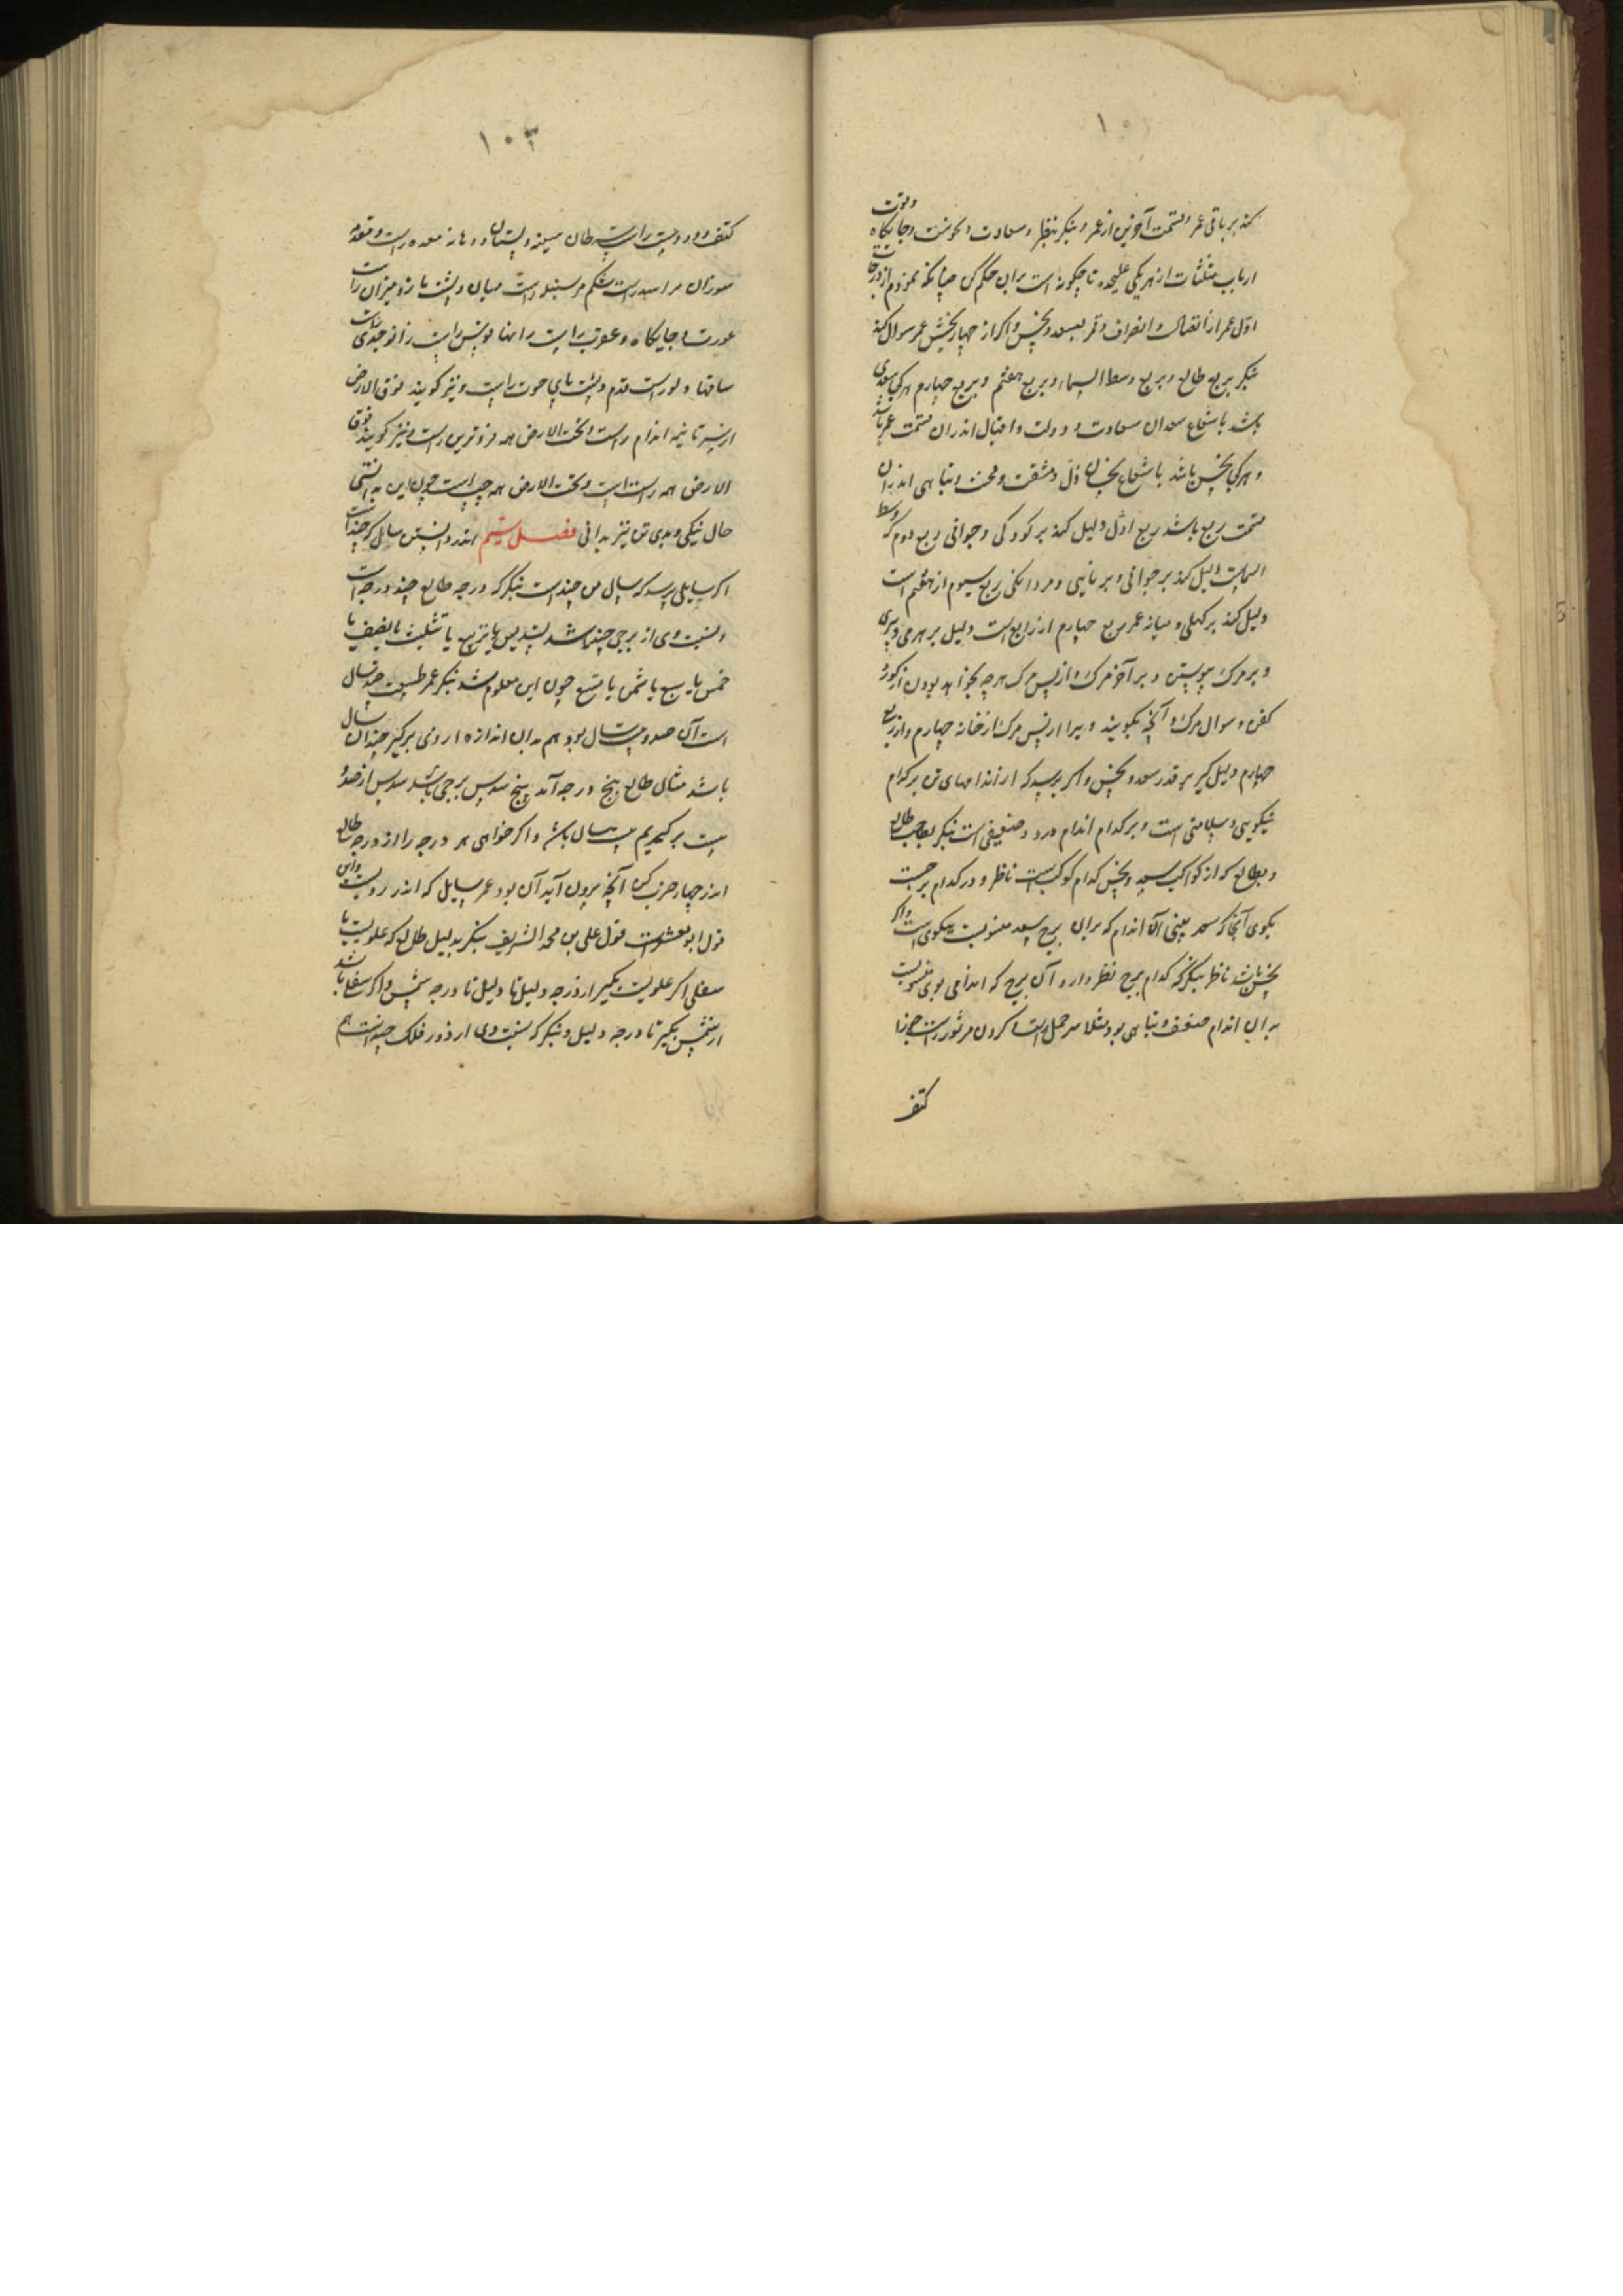 کند بر باقی عمر و قسمت آخرین از عمر و بنکر بنظر و سعادت و نحوست و جایکاه و قوت
ارباب مثلثات از هر یکی علیحده تا چکونه است بران حکم کن چنانکه نمودم از درجات
اول عمر از اتصال و انصراف قمر بسعد و نحس و اکر از چهار بخش عمر سوال کند
بنکر بربع طالع و بربع وسط السماء و بربع هفتم و بربع چهارم هر کی سعدی
باشد یا شعاع سعدان سعادت و دولت و اقبال اندران قسمت عمر باشد
و هر کی نحس باشد یا شعاع نحسان ذل و مشقت و محنت و تباهی اندران
قسمت ربع باشد ربع اول دلیل کند بر کودکی و جوانی ربع دوم که وسط
السماست دلیل کند بر جوانی و برنایی و مردانکی ربع سیوم از هفتم است
دلیل کند بر کهلی و میانه عمر ربع چهارم از رابع است دلیل بر هرمی و پیری
و بر مرک پیوستن و بر آخر مرک و از پس مرک هرچه بخواهد بودن از کور و
کفن و سوال مرک و آنچه بکویند ویرا از پس مرک از خانه چهارم و از ربع
چهارم دلیل کیر بر قدر سعد و نحس و اکر پرسد که از اندامهای تن بر کدام
نیکویی و سلامتی است و بر کدام اندام درد و ضعیفی است بنکر بصاحب طالع
و بطالع که از کواکب سعد و نحس کدام کوکبست ناظر و در کدام برجست
بکوی آنجا که سعد بینی آن اندام که بران برج سعد منسوبست نیکوی است و اکر
نحس باشد ناظر بنکر که کدام برج نظر دارد آن برج که اندامی بوی منسوبست
بدان اندام ضعف و تباهی بود مثلا سر حمل راست و کردن مر ثور راست جوزا
کتف
۱۰۳
کتف و دو دست راست سرطان سینه و پستان و دهانه معده راست و مقدم
سوزان مر اسد راست شکم مر سنبله راست میان و پشت با زو میزان راست
عورت و جایکاه و عقرب راست رانها قوس راست زانو جدی راست
ساقها دلو راست قدم و پشت پای حوت راست و نیز کویند فوق الارض
از سر تا نیمه اندام راست و تحت الارض همه فروترین راست و نیز کویند فوق
الارض همه راست است و تحت الارض همه چپ است چون این بدانستی
حال نیکی و بدی تن نیز بدانی فصل ششم اندر دانستن سالی که چند است
اکر سایلی پرسد که سال من چند است بنکر که درجه طالع چند درجه است
و نسبت وی از برجی چند باشد تسدیس یا تربیع یا تثلیث یا نصف یا
خمس یا سبع یا ثمن یا تسع چون این معلوم شد بنکر عمر طبیعت چند سال
است آن صد و بیست سال بود هم بدان اندازه از وی برکیر چندان سال
باشد مثال طالع پنج درجه آمد پنج سدس برجی باشد سدس از صد و
بیست برکیریم بیست سال باشد و اکر خواهی هر درجه را از درجه طالع
اندر چهار ضرب کن آنچه برون آید آن بود عمر سایل که اندر رویست و این
قول ابو معشر است قول علی بن محمد الشریف بنکر بدلیل طالع که علویست یا
سفلی اکر علویست بکیر از درجه دلیل تا درجه شمس و اکر سفلی باشد
از شمس بکیر تا درجه دلیل و بنکر که نسبت وی از دور فلک چند است هم